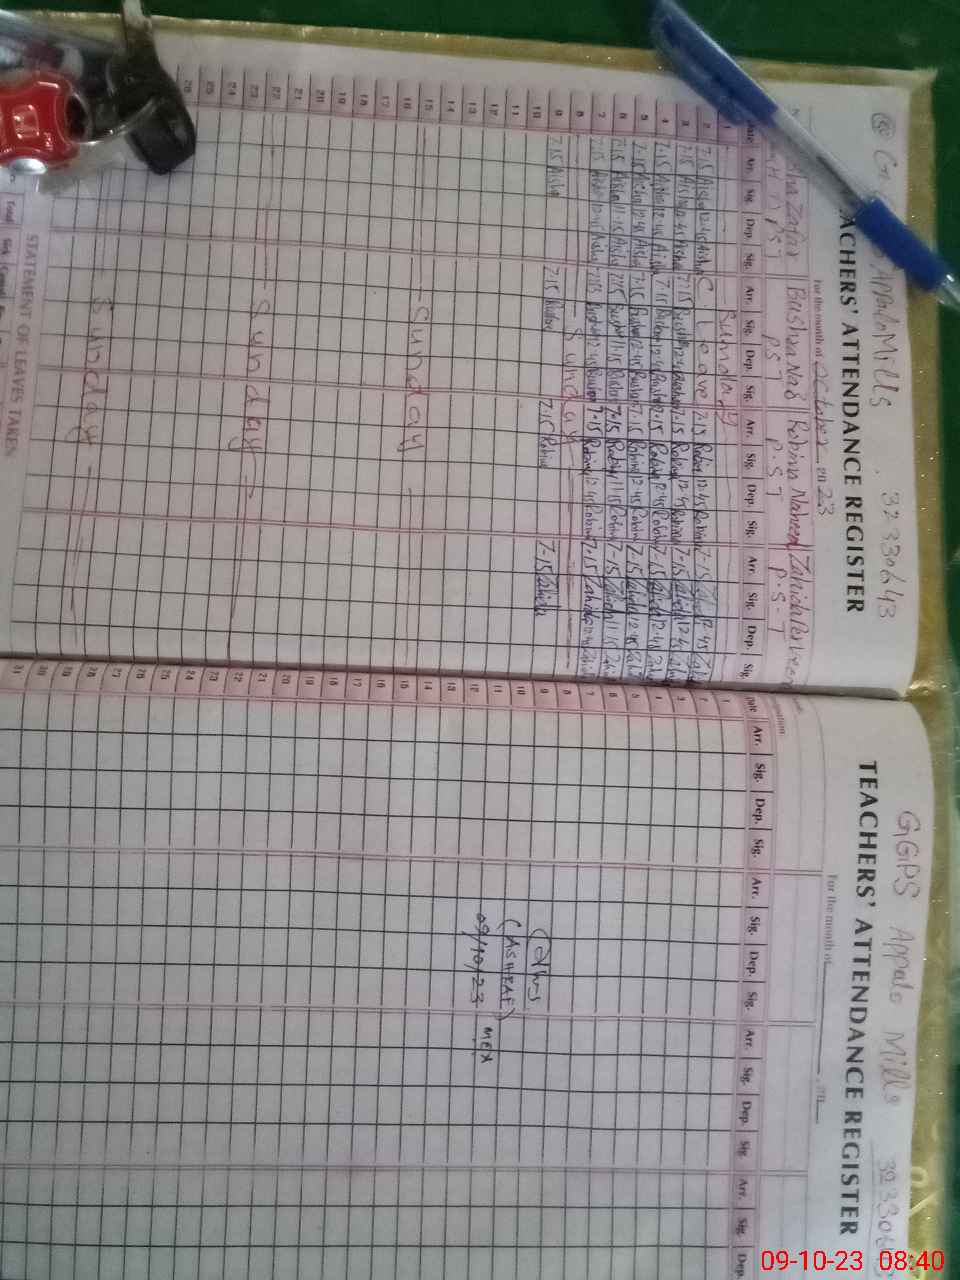 Appalo Mills 32330643
TEACHERS' ATTENDANCE REGISTER
For the month of October 2023
Zafar Bushra Naz Robina Naheed Zahida Perveen
PST PST P.S.T P.S.T
Date Arr. Sig. Dep. Sig. Arr. Sig. Dep. Sig. Arr. Sig. Dep. Sig. Arr. Sig. Dep. Sig.
1 Sunday
2 7:15 Aisha 12:45 Aisha C. Leave 7:15 Robina 12:45 Robina 7-15 Zahida 12:45 Zahida
3 7:15 Aisha 12:45 Aisha 7:15 Bushra 12:45 Bushra 7:15 Robina 12:45 Robina 7-15 Zahida 12:45 Zahida
4 7:15 Aisha 12:45 Aisha 7:15 Bushra 12:45 Bushra 7:15 Robina 12:45 Robina 7-15 Zahida 12:45 Zahida
5 7:15 Aisha 12:45 Aisha 7:15 Bushra 12:45 Bushra 7:15 Robina 12:45 Robina 7-15 Zahida 12:45 Zahida
6 7:15 Aisha 11:15 Aisha 7:15 Bushra 11:15 Bushra 7:15 Robina 11:15 Robina 7-15 Zahida 11:15 Zahida
7 7:15 Aisha 12:45 Aisha 7:15 Bushra 12:45 Bushra 7:15 Robina 12:45 Robina 7-15 Zahida 12:45 Zahida
8 Sunday
9 7:15 Aisha 7:15 Bushra 7:15 Robina 7-15 Zahida
10
11
12
13
14
15 Sunday
16
17
18
19
20
21
22 Sunday
23
24
25
26
Sunday
STATEMENT OF LEAVES TAKEN
GGPS Appalo Mills 32330643
TEACHERS' ATTENDANCE REGISTER
For the month of 201
Date Arr. Sig. Dep. Sig. Arr. Sig. Dep. Sig. Arr. Sig. Dep. Sig. Arr. Sig. Dep.
1
2
3
4
5
6
7
8
9
10
11 (ASHRAF)
12 09/10/23 MEA
13
14
15
16
17
18
19
20
21
22
23
24
25
26
27
28
29
30
31
09-10-23 08:40